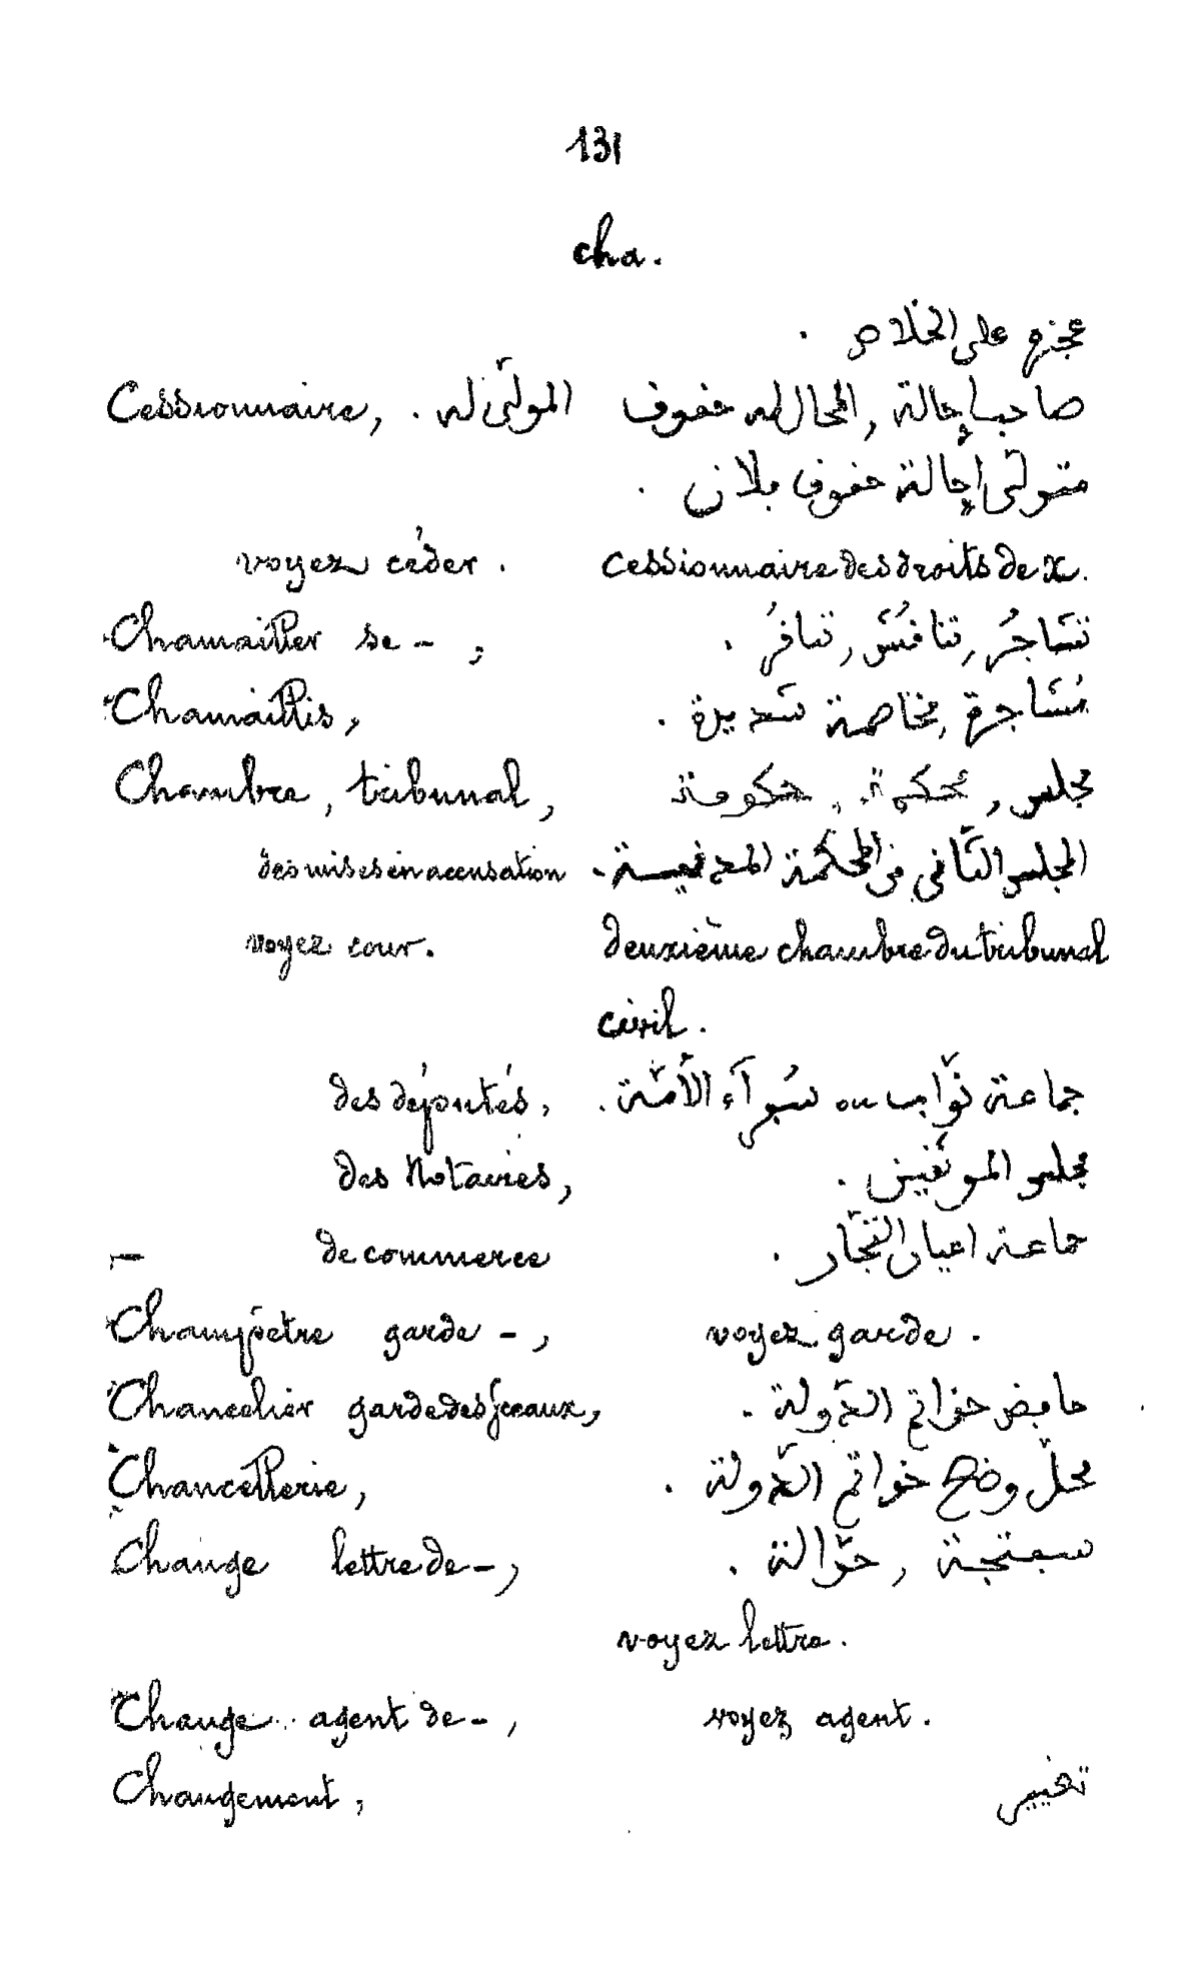 131
cha.
عجزه على الخلاص .
Cessionnaire, صاحب إحالة , المحال له حقوق المولّى له .
متولّى إحالة حقوق فلان .
voyez céder . Cessionnaire des droits de x.
Chamailler se - ; تشَاجُر , تنافُسَ , تنافُر .
Chamaillis, مُشَاجرة , مخاصمة شديدة .
Chambre, tribunal, مجلس , محكمة , حكومة
des mises en accusation المجلس الثّاني من المحكمة المدنيسة -
voyez cour. deuxième chambre du tribunal
civil .
des députés, جماعة نوّاب ou سُبرآء الأمّة .
des Notaires, مجلس الموثقين .
— de commerce جماعة اعيان التجّار .
Champêtre garde -, voyez garde .
Chancelier garde des sceaux, حافض خواتم الدّولة -
Chancellerie, محلّ وضع خواتم الدّولة .
Change lettre de -, سفتجة , حوّالة .
voyez lettre .
Change agent de -, voyez agent .
Changement, تغيير